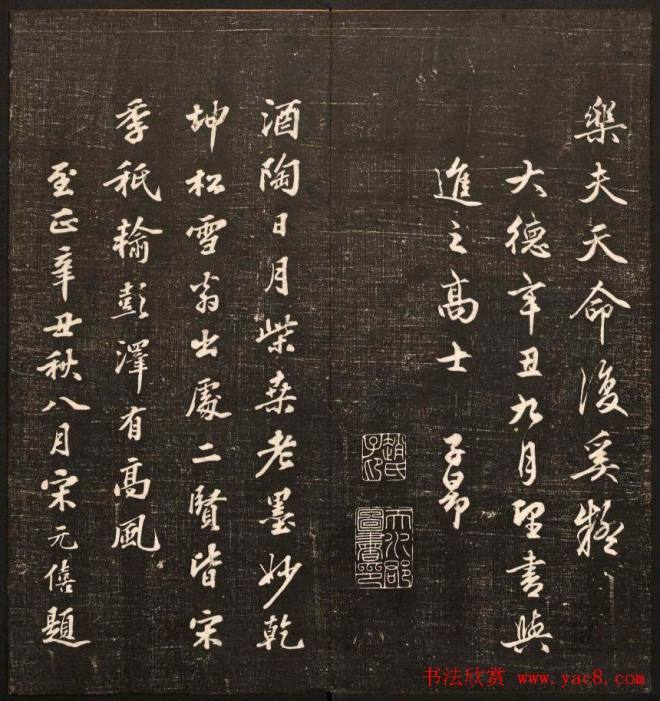 樂夫天命復奚疑
大德辛丑九月望書與
進之高士 子昂
趙氏子印
天水郡圖書印
酒陶日月柴桑老墨妙乾
坤松雪翁出處二賢皆宋
季秖輸彭澤有高風
至正辛丑秋八月宋元僖題
书法欣赏 www.yac8.com